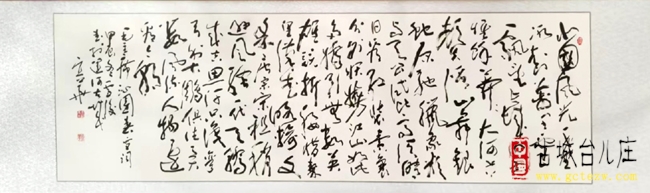 北国风光千里
冰封万里
雪飘望长城
顿失滔滔山舞银
蛇原驰蜡象欲
与天公试比高须晴
日看红装素裹
分外妖娆江山如此
多娇引无数英
雄竞折腰惜秦
皇汉武略输文
采唐宗宋祖稍
逊风骚一代天骄
成吉思汗只识弯
弓射大雕俱往矣
数风流人物还
看今朝
毛主席沁园春雪词
古城台儿庄